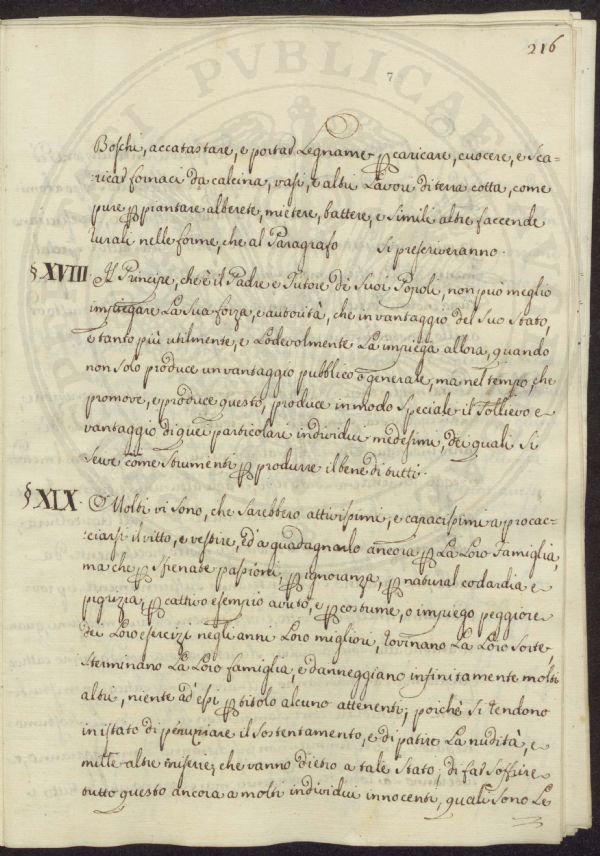 216
7
Boschi, accatastare, e portar Legname, p caricare, cuocere, e sca-
ricar fornaci da calcina, vasi, e altri Lavori di terra cotta, come
pure p piantare alberete, mietere, battere, e simili altre faccende
rurali nelle forme, che al Paragrafo si prescriveranno.
§ XVIII. Il Principe, che è il Padre e Tutore de' Suoi Popoli, non può meglio
impiegare La Sua forza, e autorità, che in vantaggio del Suo Stato,
e tanto più utilmente, e Lodevolmente La impiega allora, quando
non solo produce un vantaggio pubblico o generale, ma nel tempo, che
promove, e produce questo, produce in modo speciale il sollievo e
vantaggio di quei particolari individui medesimi, de' quali si
serve come strumenti p produrre il bene di tutti.
§ XIX. Molti vi sono, che sarebbero attivissimi, e capacissimi a procac-
ciarsi il vitto, e vestire, ed a guadagnarlo ancora p La Loro Famiglia,
ma che p sfrenate passioni, p ignoranza, p natural codardia e
pigrizia, p cattivo esempio avuto, e p costume, o impiego peggiore
dei Loro esercizi negli anni Loro migliori, rovinano La Loro Sorte
sterminano La Loro famiglia, e danneggiano infinitamente molti
altri, niente ad essi p titolo alcuno attenenti; poichè si rendono
in istato di penuriare il sostentamento, e di patire La nudità, e
mille altre miserie, che vanno dietro a tale stato; di far soffrire
tutto questo ancora a molti individui innocenti, quali sono Le